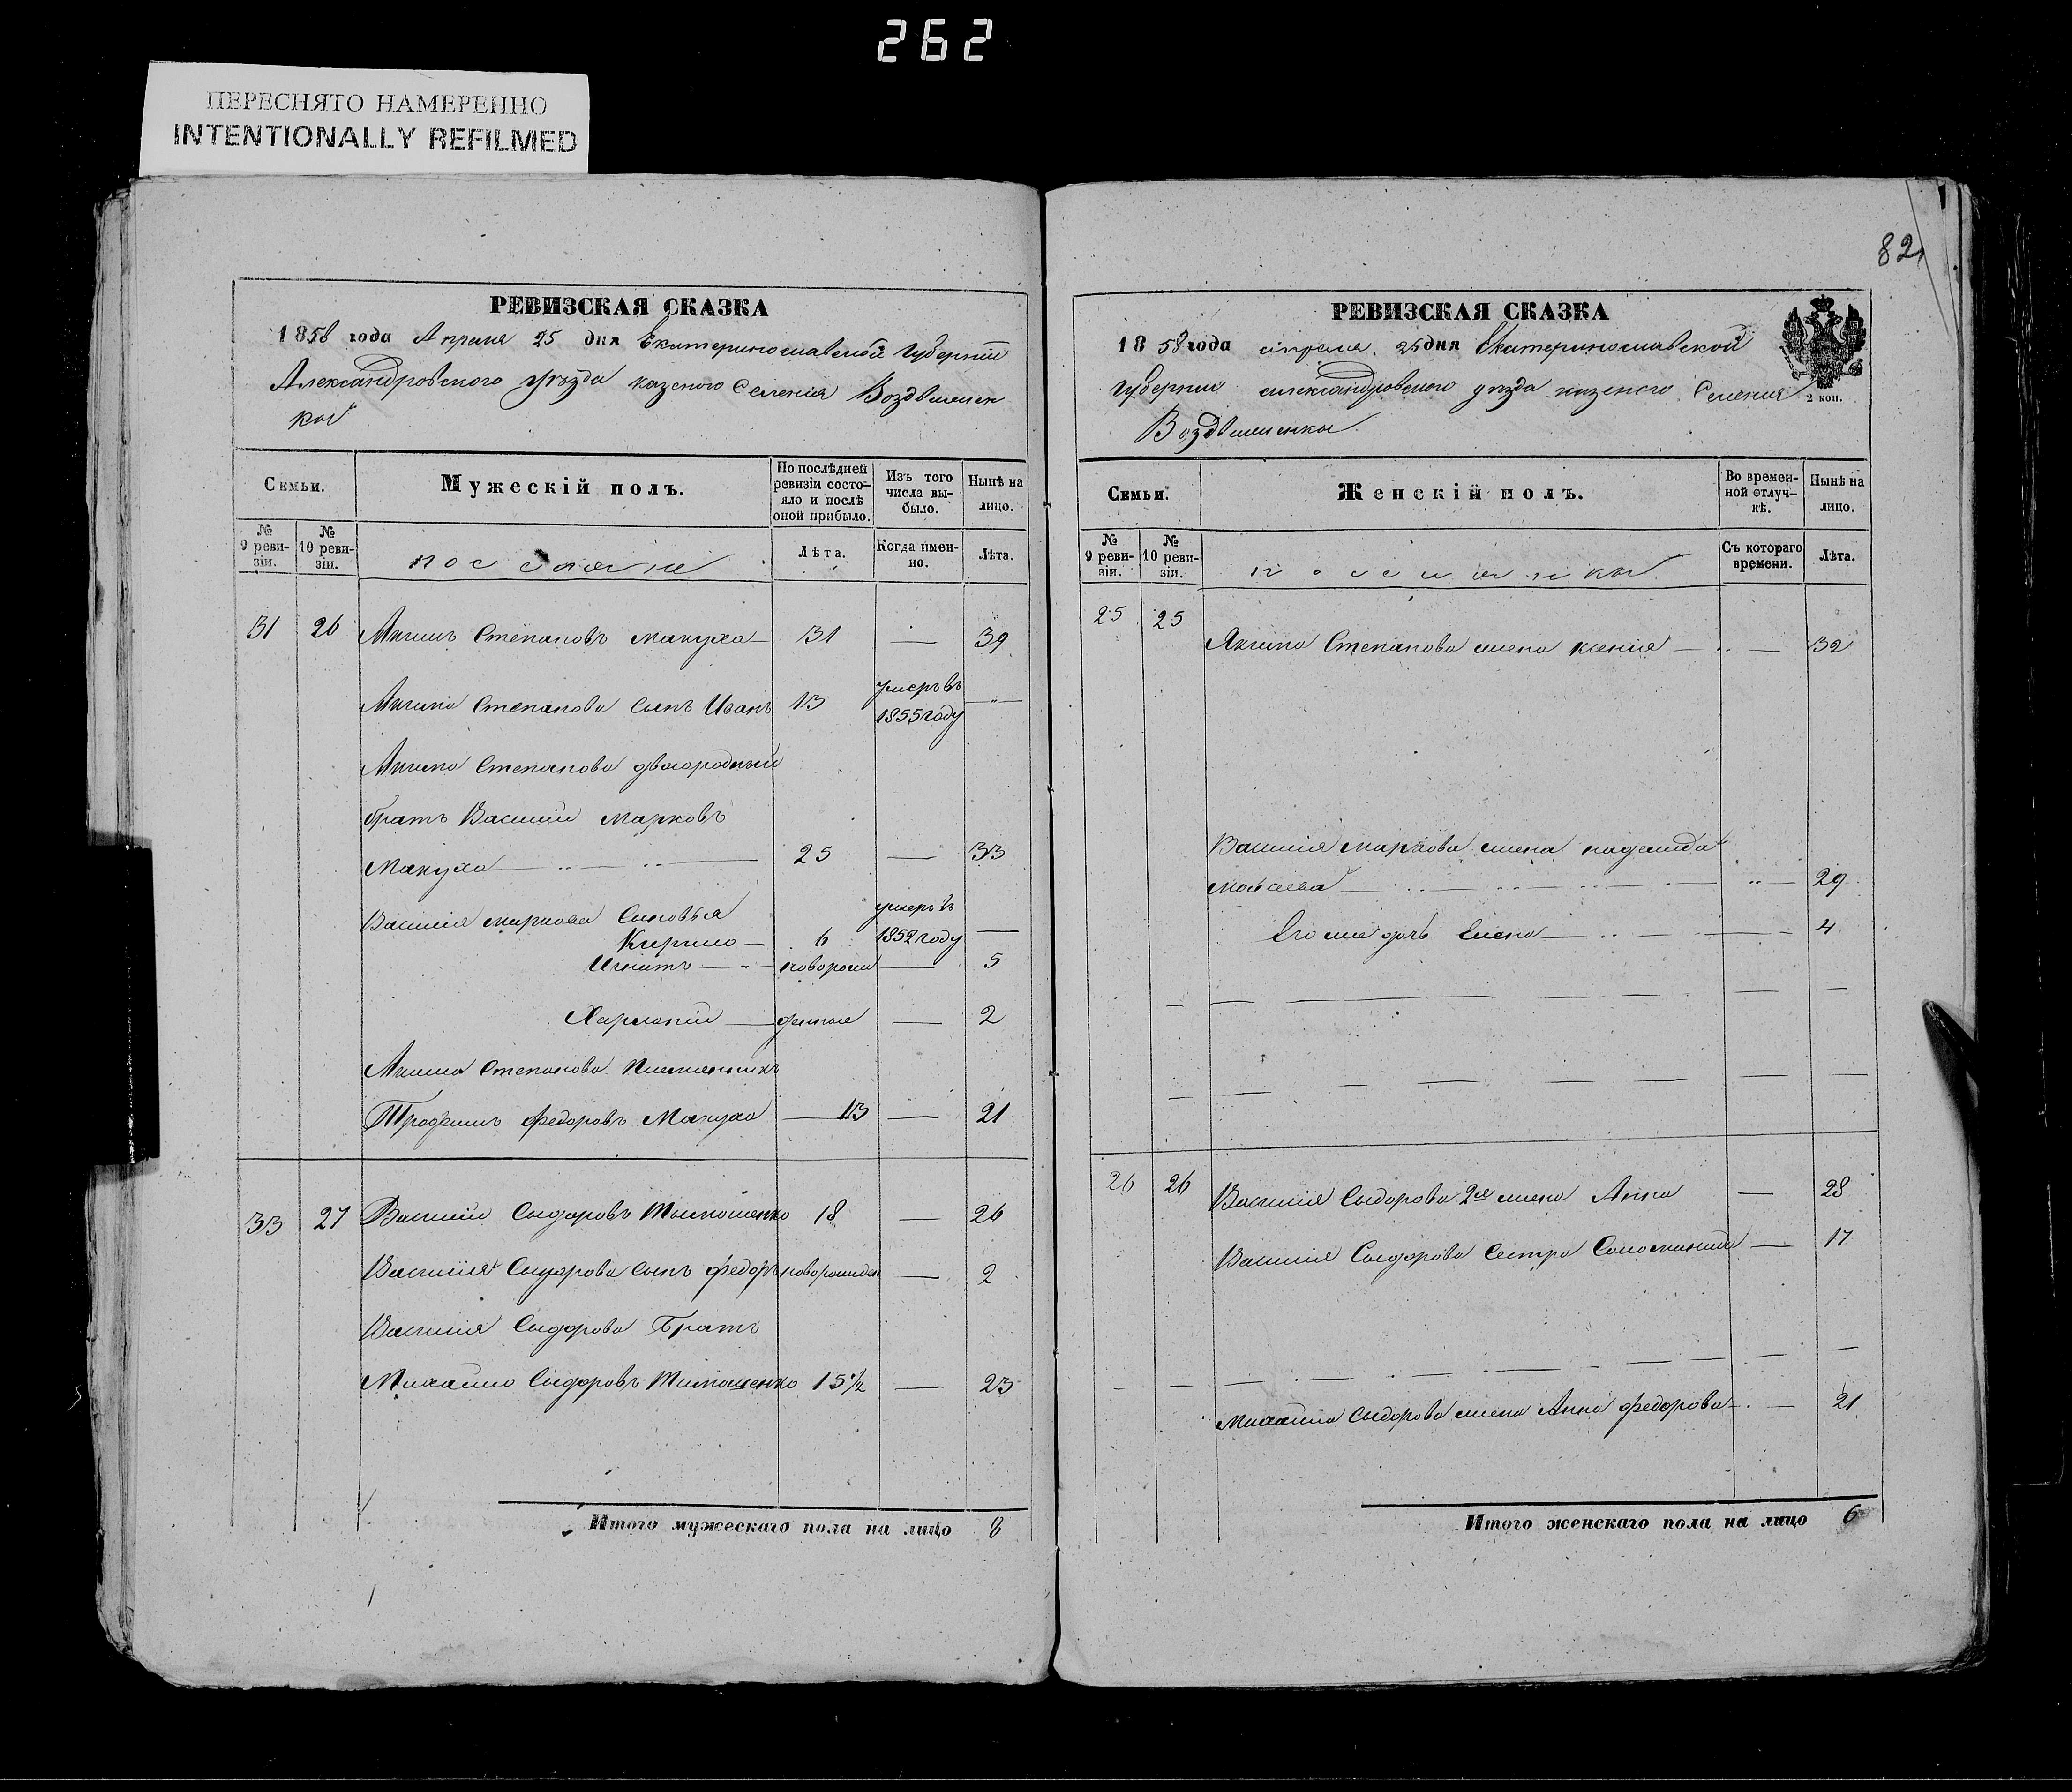 262
ПЕРЕСНЯТО НАМЕРЕННО
INTENTIONALLY REFILMED
РЕВИЗСКАЯ СКАЗКА
1858 года Апреля 25 дня Екатеринославской Губернии
Александровского уѣзда казеного Селения Воздвиженки
Семьи.
Мужескій полъ.
По послѣдней ревизіи состояло и послѣ оной прибыло.
Изъ того числа выбыло.
Нынѣ на лицо.
№ 9 ревизіи.
№ 10 ревизіи.
поселяне
Лѣта.
Когда именно.
Лѣта.
31 26 Акимъ Степановъ Макуха 31 — 39
Акима Степанова сынъ Иванъ 13 умеръ въ 1855 году —
Акима Степанова двоюродный
братъ Василий Марковъ
Макуха 25 — 33
Василия Маркова Сыновья
Кирило 6 умеръ въ 1852 году —
Игнатъ новорож — 5
Харлапий денные — 2
Акима Степанова Племянникъ
Трофимъ Федоровъ Макуха — 13 — 21
33 27 Василий Сыдоровъ Тымошенко 18 — 26
Василия Сыдорова сынъ Федоръ новорожден — 2
Василия Сыдорова Братъ
Михайло Сыдоровъ Тимошенко 15½ — 23
Итого мужескаго пола на лицо 8
82
РЕВИЗСКАЯ СКАЗКА
1858 года апреля 25 дня Екатеринославской
Губернии александровского уѣзда казеного Селения
2 коп.
Воздвиженки
Семьи.
Женскій полъ.
Во временной отлучкѣ.
Нынѣ на лицо.
№ 9 ревизіи.
№ 10 ревизіи.
поселянки
Съ котораго времени.
Лѣта.
25 25
Акима Степанова жена ксения — 32
Василия Маркова жена надежда
Моисеева — 29
Его же дочь Елена — 4
26 26 Василия Сыдорова 2я жена Анна — 28
Василия Сыдорова Сестра Соломонида — 17
Михайла Сыдорова жена Анна Федорова — 21
Итого женскаго пола на лицо 6